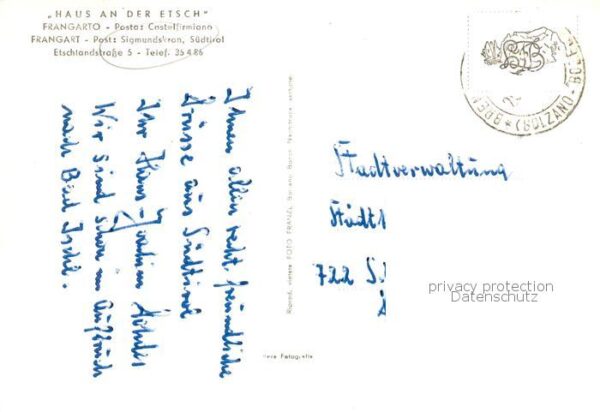 „HAUS AN DER ETSCH"
FRANGARTO - Posta: Castelfirmiano
FRANGART - Post: Sigmundskron, Südtirol
Etschlandstraße 5 - Telef. 35 4 86
Ihnen allen recht freundliche
Grüsse aus Südtirol
Ihr Hans-Joachim
Wir sind schon im Aufbruch
nach Bad Ischl.
Riprod. vietata FOTO FRANZL Bolzano Bozen Nachdruck verboten
Vera Fotografia
Stadtverwaltung
Städt
722 S
privacy protection
Datenschutz
(BOLZANO - BOZEN)